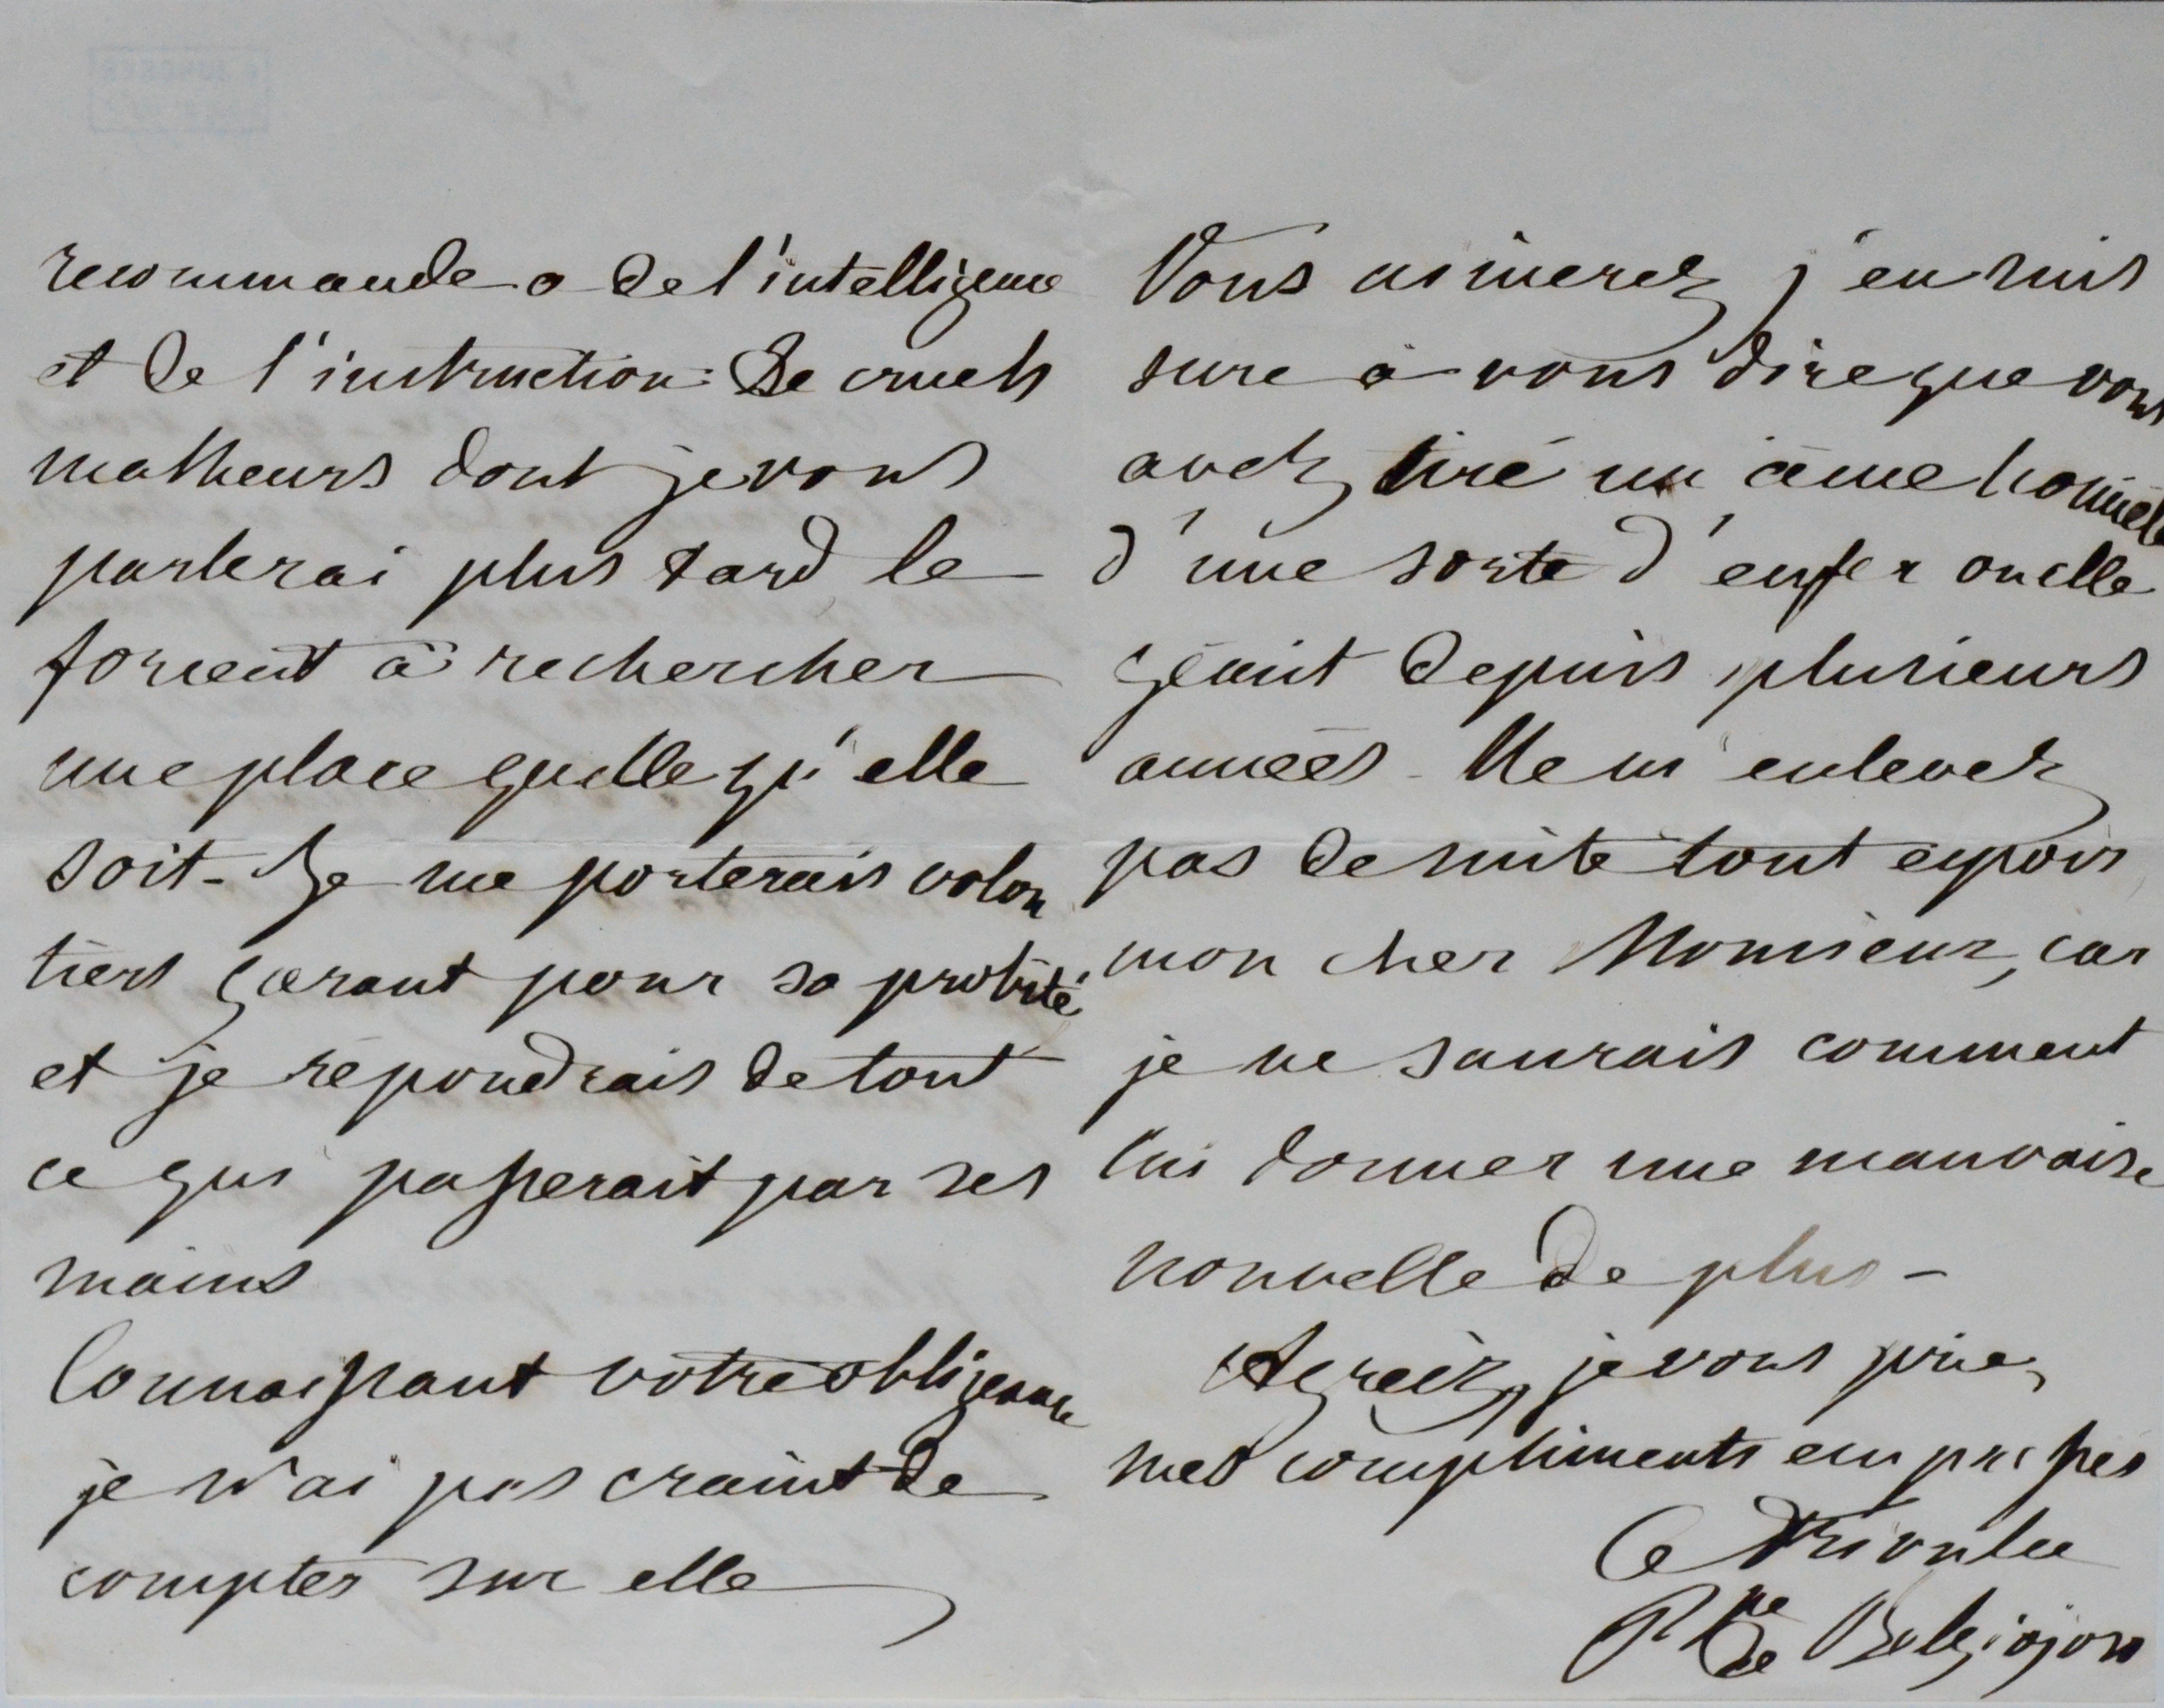 recommande a de l'intelligence
et de l'instruction. De cruels
malheurs dont je vous
parlerai plus tard le
forcent à rechercher
une place quelle qu'elle
soit - Je me porterais volon
tiers garant pour sa probité
et je répondrais de tout
ce qui passerait par ses
mains
Connaissant votre obligeance
je n'ai pas craint de
compter sur elle
Vous aimerez j'en suis
sure à vous dire que vous
avez tiré un âme honnête
d'une sorte d'enfer ou elle
gémit depuis plusieurs
années - Ne m'enlevez
pas de suite tout espoir
mon cher Monsieur, car
je ne saurais comment
lui donner une mauvaise
nouvelle de plus -
Agréez, je vous prie,
mes compliments empressés
Ce Trivulce
Psse de Belgiojoso